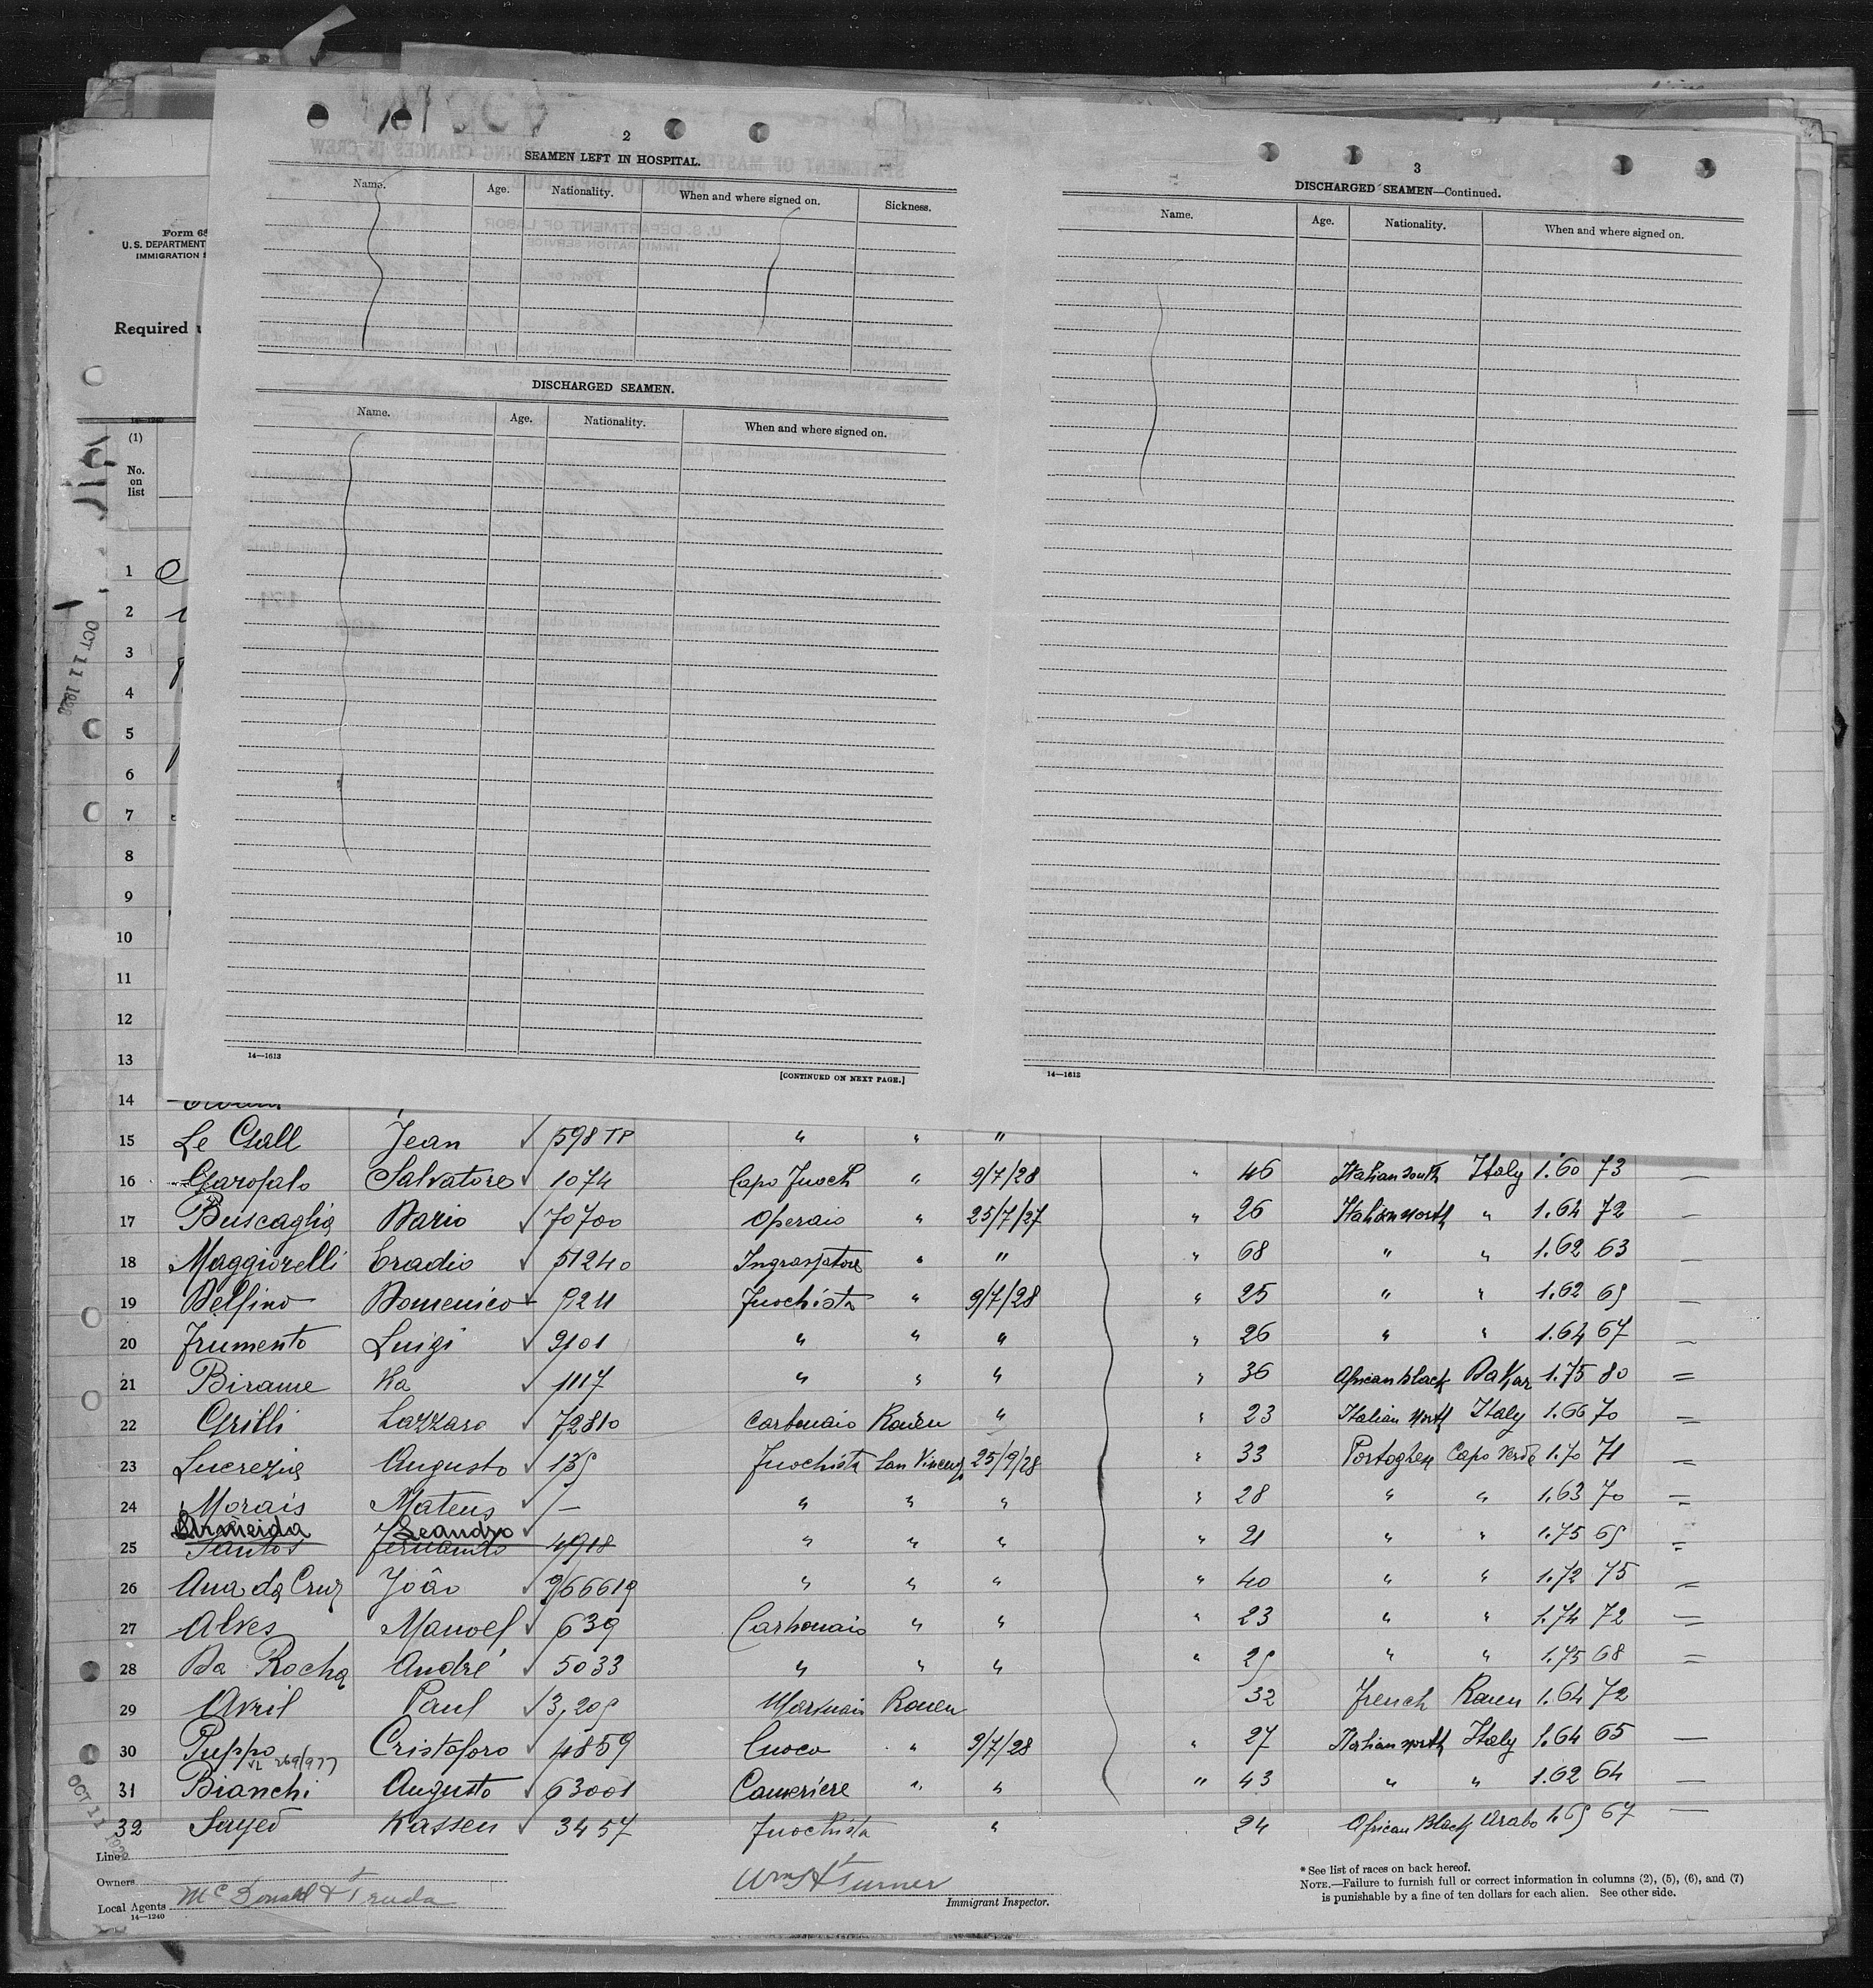 2
SEAMEN LEFT IN HOSPITAL.
Name. Age. Nationality. When and where signed on. Sickness.
DISCHARGED SEAMEN.
Name. Age. Nationality. When and where signed on.
14—1613
[CONTINUED ON NEXT PAGE.]
3
DISCHARGED SEAMEN—Continued.
Name. Age. Nationality. When and where signed on.
14—1613
Form 68
U. S. DEPARTMENT
IMMIGRATION
Required
14—1240
(1)
No.
on
list
OCT 11 1928
1
2
3
4
5
6
7
8
9
10
11
12
13
14
15 Le Chall Jean ✓ 598 TP " " "
16 Garofalo Salvatore ✓ 1074 Capo Fuoch " 9/7/28 " 46 Italian South Italy 1.60 73 —
17 Buscaglia Dario ✓ 70700 Operaio " 25/7/27 " 26 Italian North " 1.64 72 —
18 Maggiorelli Eradio ✓ 51240 Ingrassatore " " " 68 " " 1.62 63 —
19 Delfino Domenico ✓ 9211 Fuochista " 9/7/28 " 25 " " 1.62 65 —
20 Frumento Luigi ✓ 9101 " " " " 26 " " 1.64 67 —
21 Birame Ka ✓ 1117 " " " " 36 African black Dakar 1.75 80 =
22 Grilli Lazzaro ✓ 72810 Carbonaio Rouen " " 23 Italian North Italy 1.66 70 =
23 Lucrezia Augusto ✓ 135 Fuochista San Vincenzo 25/9/28 " 33 Portoghese Capo Verde 1.70 71 =
24 Morais Mateus ✓ — " " " " 28 " " 1.63 70 =
Almeida Leandro ✓
25 Santos Fernando 4918 " " " " 21 " " 1.75 65 =
26 Ana da Cruz João ✓ 966619 " " " " 40 " " 1.72 75 =
27 Alves Manoel ✓ 639 " Carbonaio " " " 23 " " 1.74 72 =
28 Da Rocha André ✓ 5033 " " " " 25 " " 1.75 68 =
29 Avril Paul ✓ 3,205 Rouen 32 French Rouen 1.64 72
30 Puppo Cristoforo ✓ 4859 Cuoco " 9/7/28 " 27 Italian North Italy 1.64 65 —
269/977
31 Bianchi Augusto ✓ 63001 Cameriere " " " 43 " " 1.62 64 —
32 Sayed Kassen ✓ 3457 Fuochista " 24 African Black Arabo 1.65 67 —
OCT 11 1928
Line
Owners
Local Agents McDonald & Truda
14—1240
Wm H Turner
Immigrant Inspector.
* See list of races on back hereof.
NOTE.—Failure to furnish full or correct information in columns (2), (5), (6), and (7)
is punishable by a fine of ten dollars for each alien. See other side.